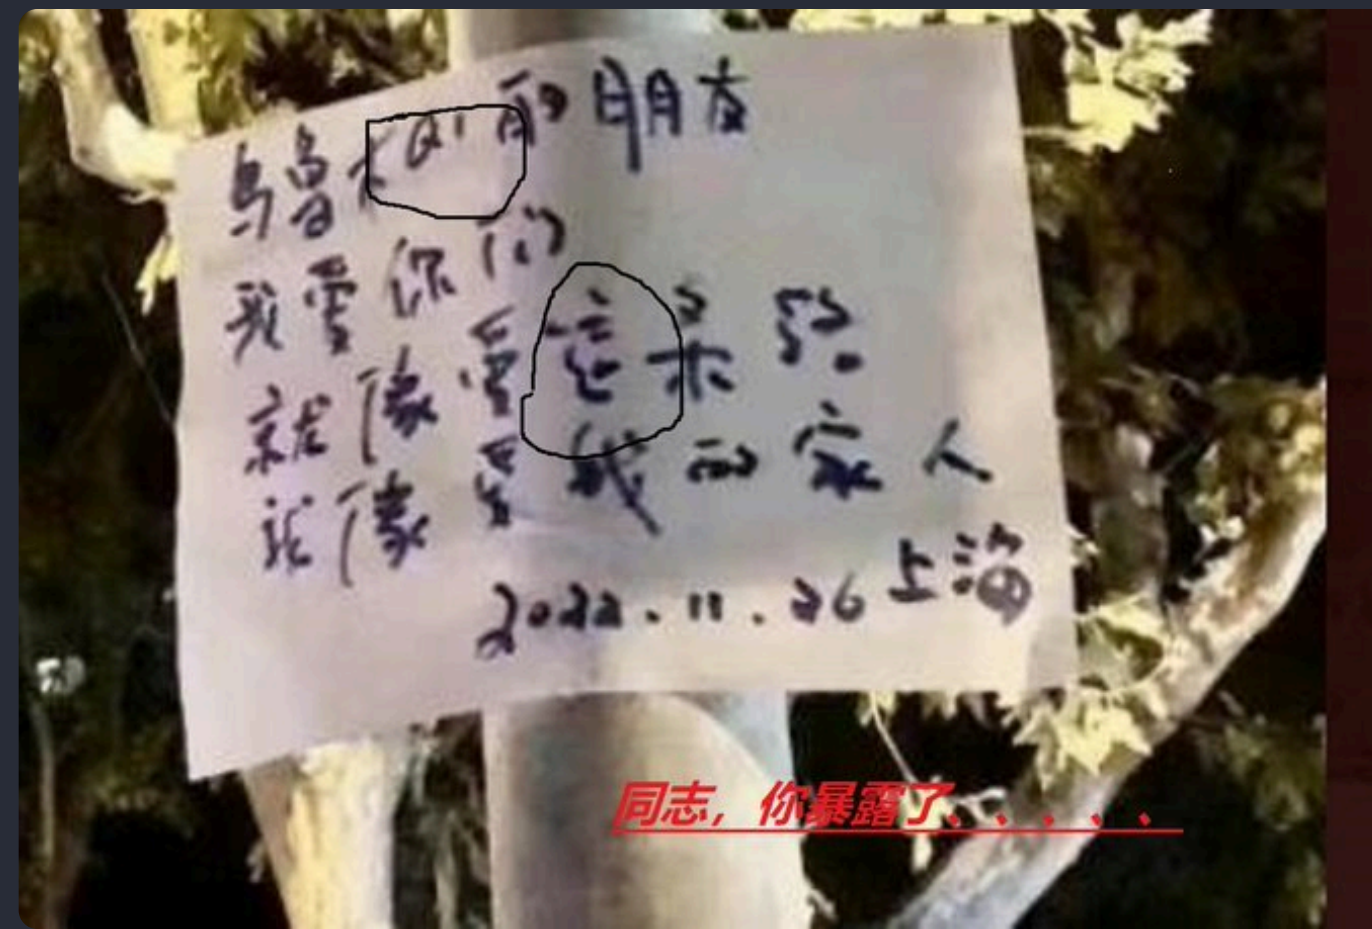 乌鲁木Qi的朋友
我爱你们
就像爱這条路
就像爱我的家人
2022.11.26 上海
同志，你暴露了、、、、、